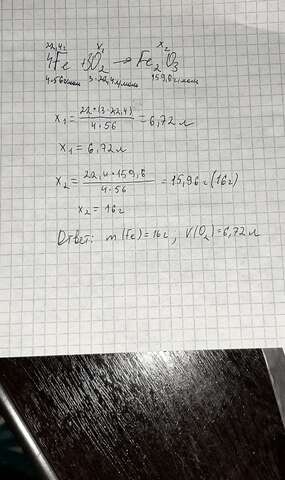 22,4г x₁ x₂
4Fe + 3O₂ → Fe₂O₃
4·56г/моль 3·22,4л/моль 159,6г/моль
x₁ = 22*(3·22,4) / 4·56 = 6,72 л
x₁ = 6,72 л
x₂ = 22,4*159,6 / 4·56 = 15,96 г (16г)
x₂ = 16г
Ответ: m(Fe)=16г, V(O₂)=6,72 л